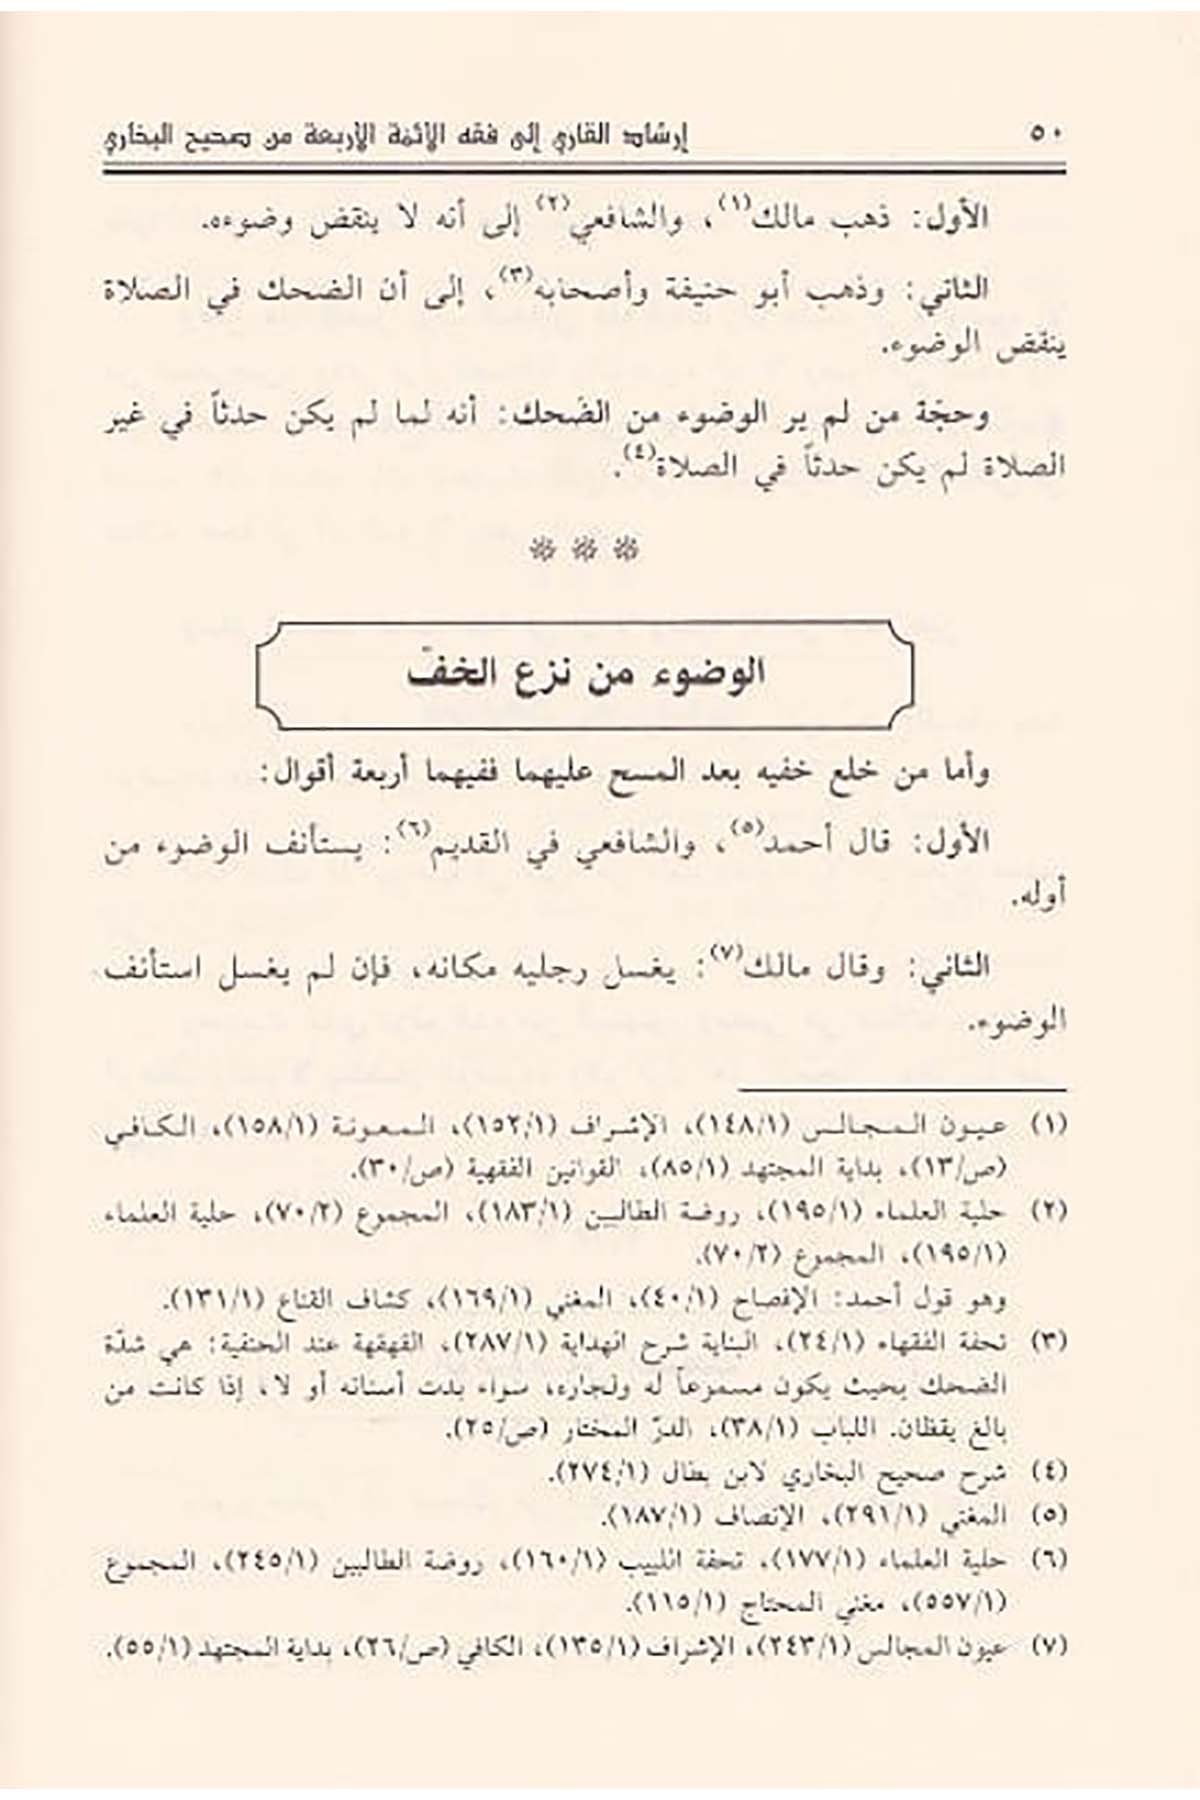 ٥٠ إرشاد القاري إلى فقه الأئمة الأربعة من صحيح البخاري
الأول: ذهب مالك(١)، والشافعي(٢) إلى أنه لا ينقض وضوءه.
الثاني: وذهب أبو حنيفة وأصحابه(٣)، إلى أن الضحك في الصلاة
ينقض الوضوء.
وحجّة من لم ير الوضوء من الضحك: أنه لما لم يكن حدثاً في غير
الصلاة لم يكن حدثاً في الصلاة(٤).
* * *
الوضوء من نزع الخفّ
وأما من خلع خفيه بعد المسح عليهما ففيهما أربعة أقوال:
الأول: قال أحمد(٥)، والشافعي في القديم(٦): يستأنف الوضوء من
أوله.
الثاني: وقال مالك(٧): يغسل رجليه مكانه، فإن لم يغسل استأنف
الوضوء.
(١) عيون المجالس (١/١٤٨)، الإشراف (١/١٥٢)، المعونة (١/١٥٨)، الكافي
(ص/١٣)، بداية المجتهد (١/٨٥)، القوانين الفقهية (ص/٣٠).
(٢) حلية العلماء (١/١٩٥)، روضة الطالبين (١/١٨٣)، المجموع (٢/٧٠)، حلية العلماء
(١/١٩٥)، المجموع (٢/٧٠).
وهو قول أحمد: الإفصاح (١/٤٠)، المغني (١/١٦٩)، كشاف القناع (١/١٣١).
(٣) تحفة الفقهاء (١/٢٤)، البناية شرح الهداية (١/٢٨٧)، القهقهة عند الحنفية: هي شدّة
الضحك بحيث يكون مسموعاً له ولجاره، سواء بدت أسنانه أو لا، إذا كانت من
بالغ يقظان. اللباب (١/٣٨)، الدرّ المختار (ص/٢٥).
(٤) شرح صحيح البخاري لابن بطال (١/٢٧٤).
(٥) المغني (١/٢٩١)، الإنصاف (١/١٨٧).
(٦) حلية العلماء (١/١٧٧)، تحفة اللبيب (١/١٦٠)، روضة الطالبين (١/٢٤٥)، المجموع
(١/٥٥٧)، مغني المحتاج (١/١١٥).
(٧) عيون المجالس (١/٢٤٣)، الإشراف (١/١٣٥)، الكافي (ص/٢٦)، بداية المجتهد (١/٥٥).